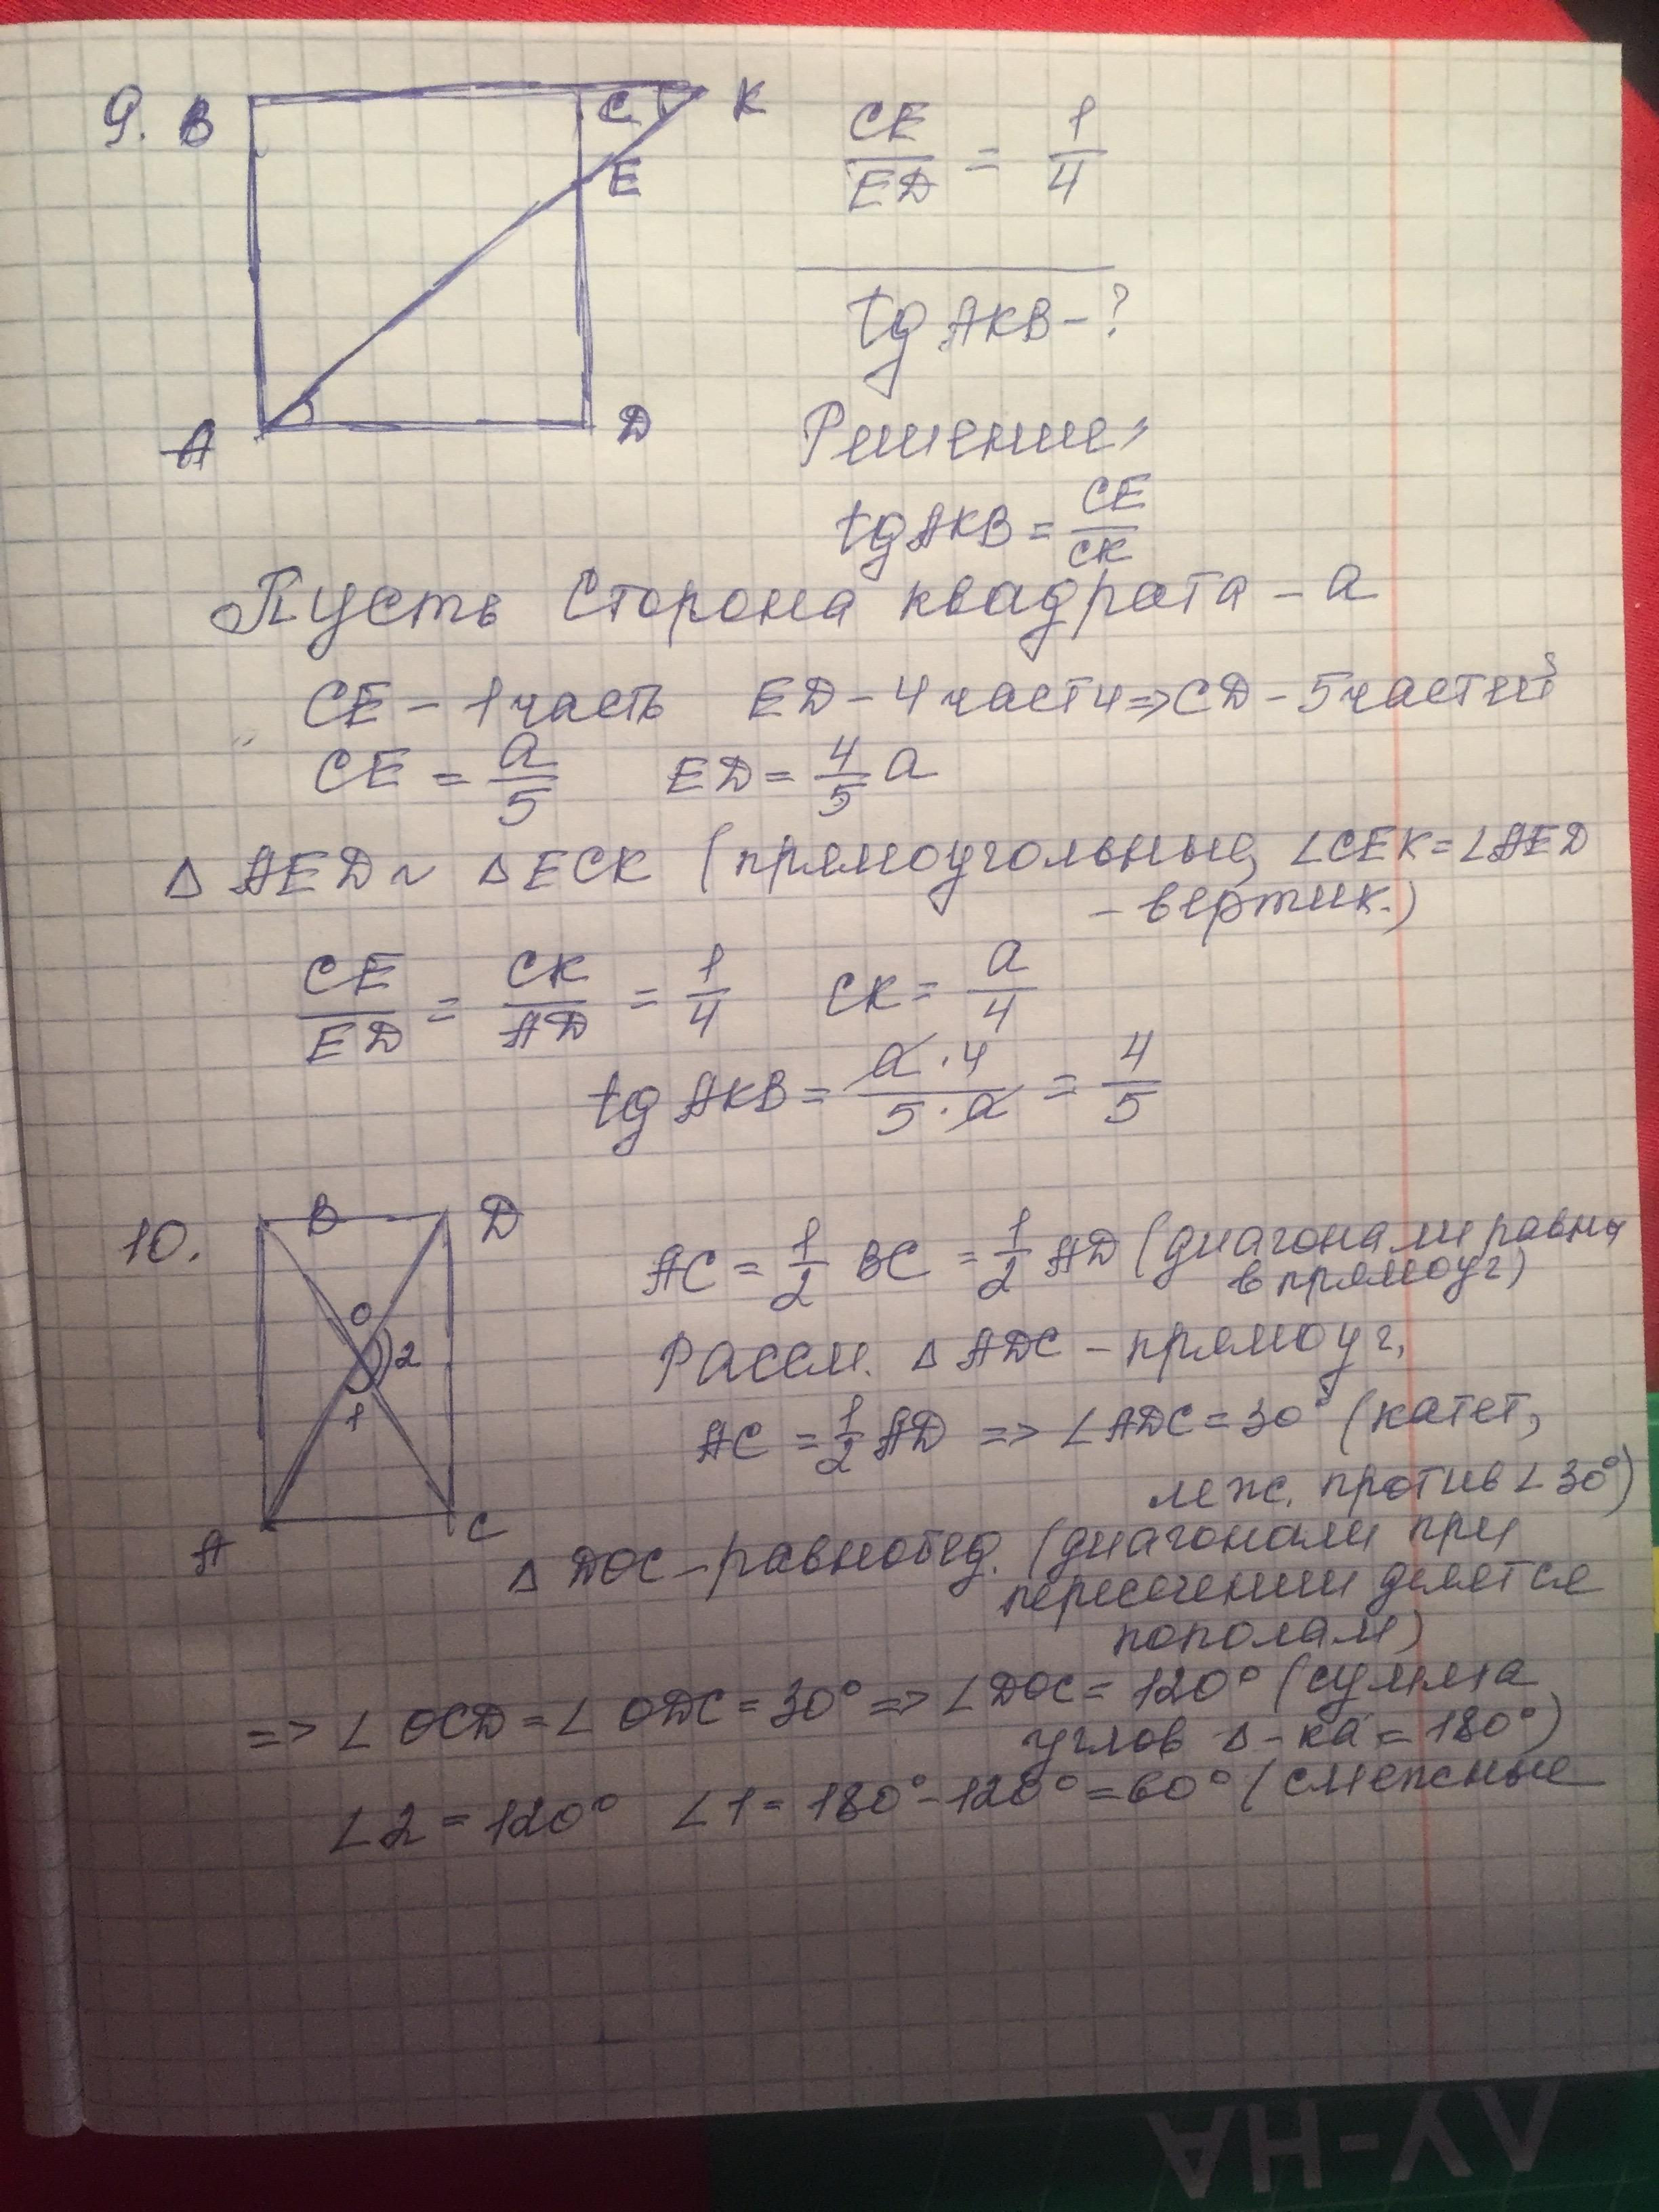 9. B C K
E
A D
CE/ED = 1/4
tg AKB - ?
Решение:
tg AKB = CE/CK
Пусть сторона квадрата - a
CE - 1 часть ED - 4 части => CD - 5 частей
CE = a/5 ED = 4/5 a
Δ AED ~ Δ ECK (прямоугольные, ∠CEK = ∠AED
- вертик.)
CE/ED = CK/AD = 1/4 CK = a/4
tg AKB = a·4/5·a = 4/5
10. B D
O
2
1
A C
AC = 1/2 BC = 1/2 AD (диагонали равны
в прямоуг)
Рассм. Δ ADC - прямоуг,
AC = 1/2 AD => ∠ADC = 30° (катет,
леж. против ∠30°)
Δ DOC - равнобед. (диагонали при
пересечении делятся
пополам)
=> ∠ OCD = ∠ ODC = 30° => ∠DOC = 120° (сумма
углов Δ-ка = 180°)
∠2 = 120° ∠1 = 180° - 120° = 60° (смежные
ЛУ-НА